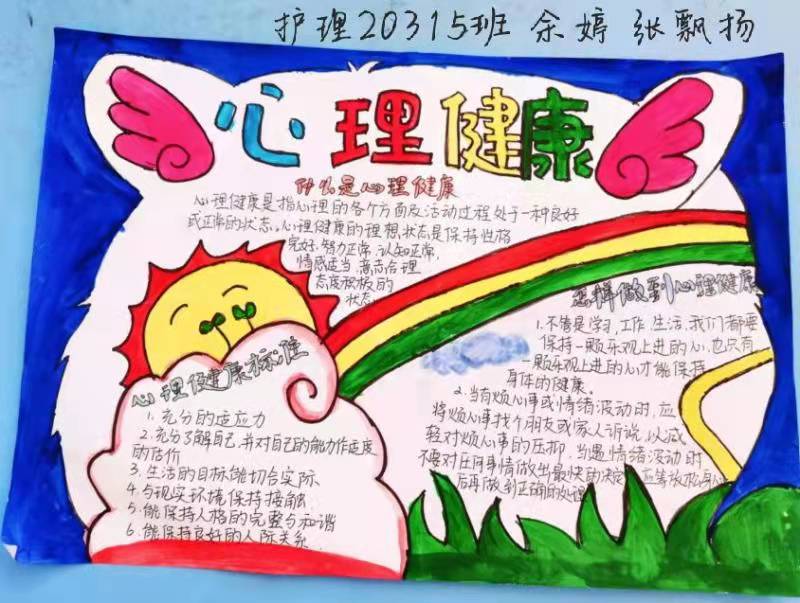 护理20315班 余婷 张飘扬
心理健康
什么是心理健康
心理健康是指心理的各个方面及活动过程处于一种良好
或正常的状态。心理健康的理想状态是保持性格
完好、智力正常、认知正常、
情感适当、意志合理
态度积极的
状态
心理健康标准
1. 充分的适应力
2. 充分了解自己,并对自己的能力作适度
的估价
3. 生活的目标能切合实际
4. 与现实环境保持接触
5. 能保持人格的完整与和谐
6. 能保持良好的人际关系
怎样做到心理健康
1. 不管是学习、工作、生活,我们都要
保持一颗乐观上进的心,也只有
一颗乐观上进的心才能保持
身体的健康。
2. 当有烦心事或情绪波动时,应
将烦心事找个朋友或家人诉说,以减
轻对烦心事的压抑,当遇情绪波动时
不要对任何事情做出最快的决定,应等放松身心
后再做到正确的处理